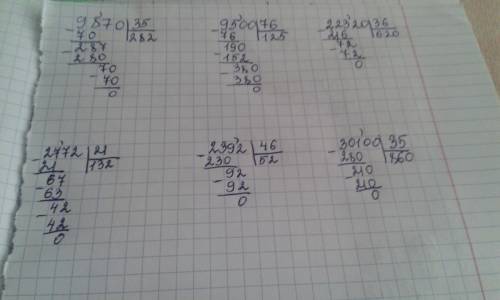 -9870 | 35
70 | 282
-287
280
-70
70
0
-9500 | 76
76 | 125
-190
152
-380
380
0
-22320 | 36
216 | 620
-72
72
0
-2772 | 21
21 | 132
-67
63
-42
42
0
-2392 | 46
230 | 52
-92
92
0
-30100 | 35
280 | 860
-210
210
0